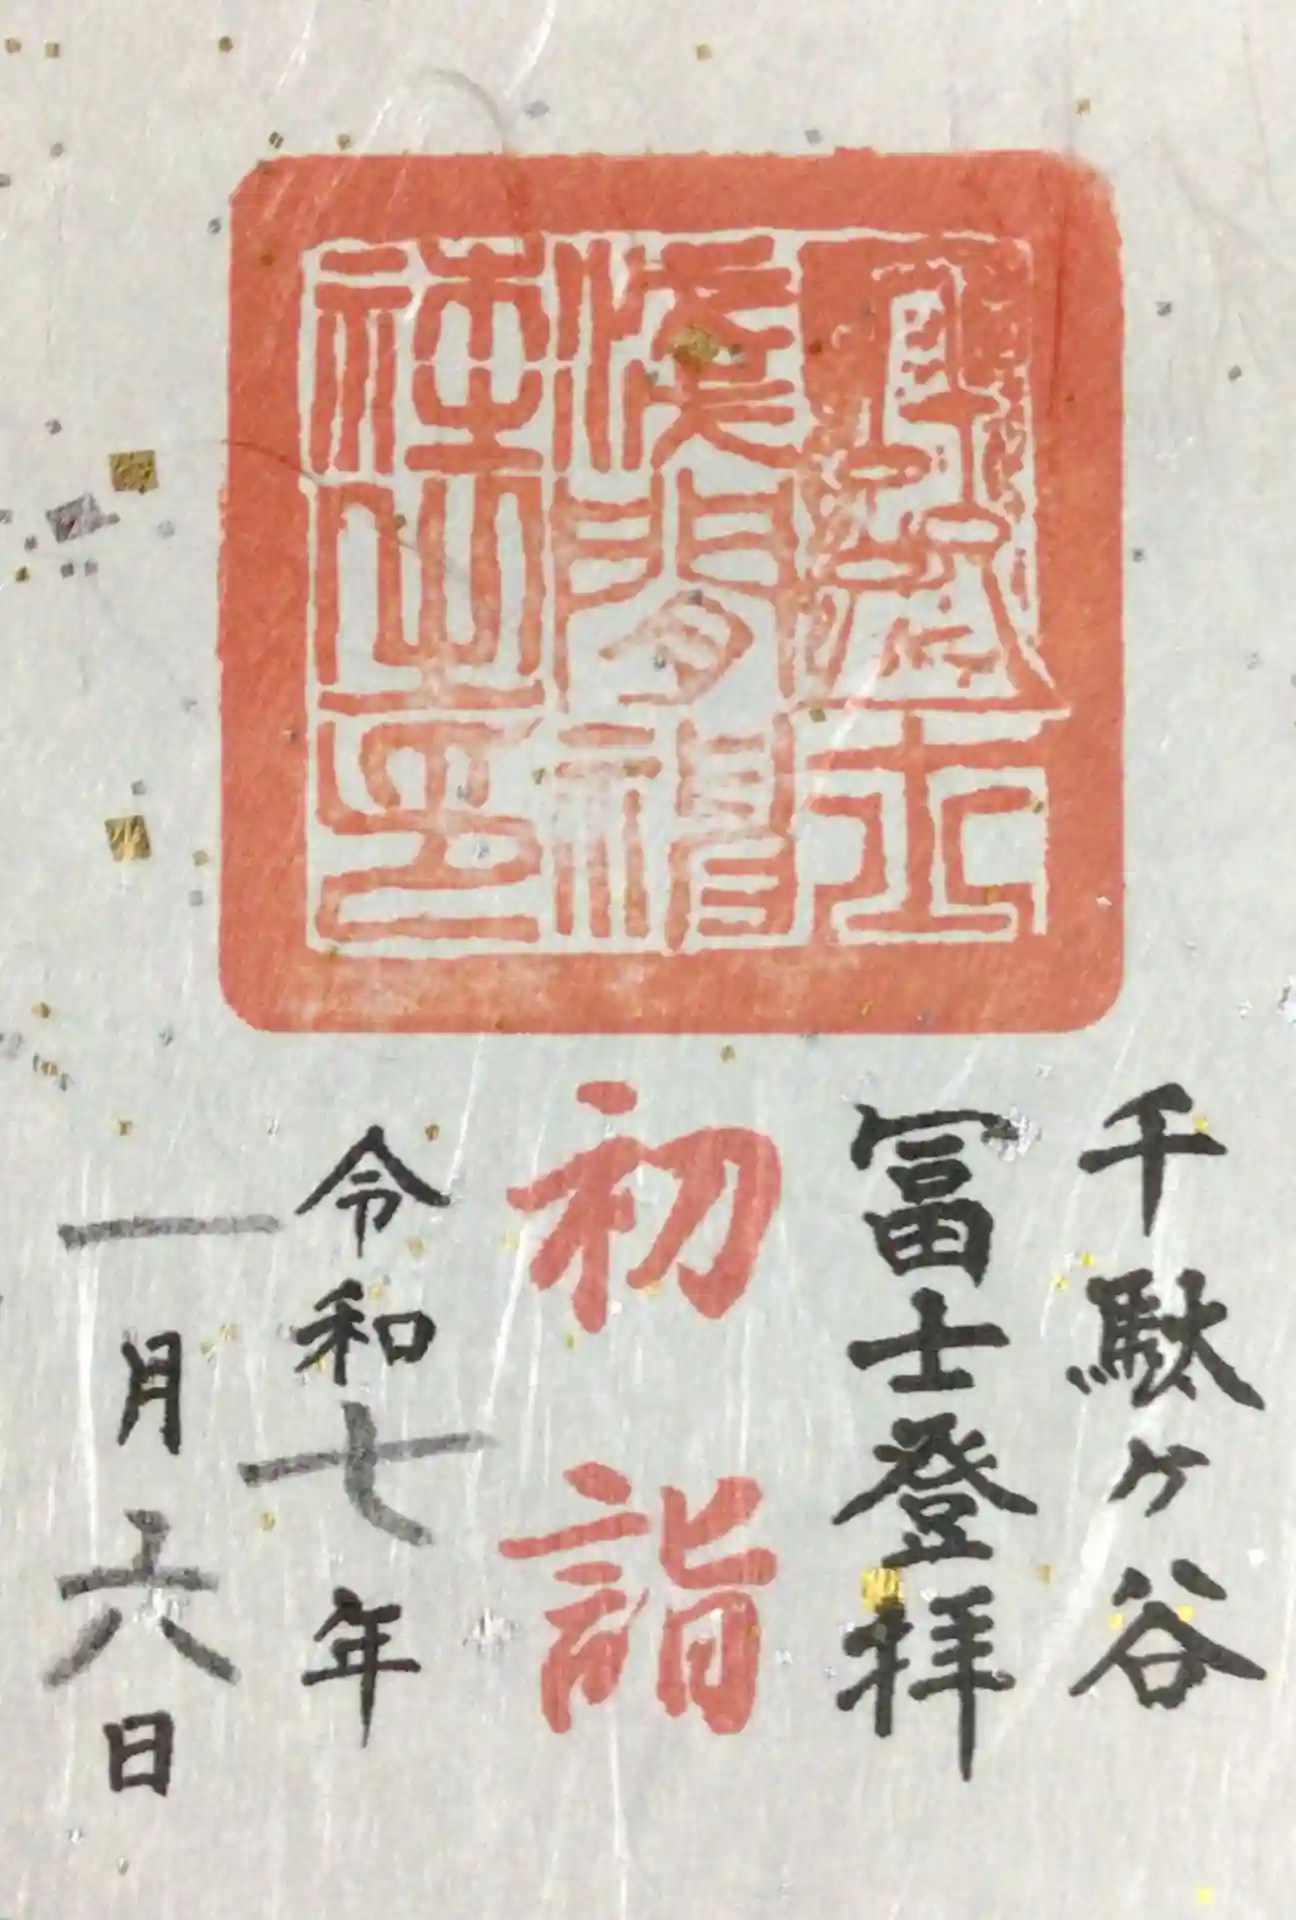 冨士
浅間神
社之印
千駄ヶ谷
冨士登拝
初詣
令和七年
一月六日